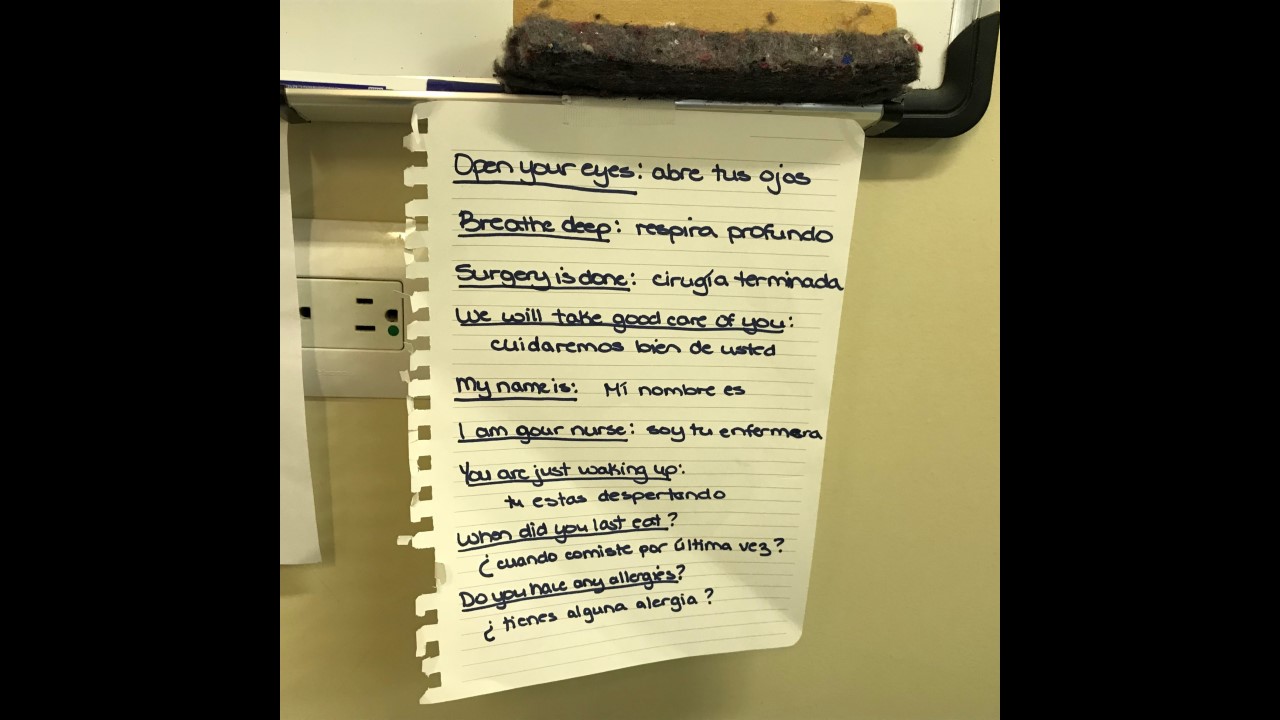 Open your eyes: abre tus ojos
Breathe deep: respira profundo
Surgery is done: cirugía terminada
We will take good care of you:
cuidaremos bien de usted
My name is: Mí nombre es
I am your nurse: soy tu enfermera
You are just waking up:
tu estas despertando
When did you last eat?
¿cuando comiste por última vez?
Do you have any allergies?
¿tienes alguna alergia?